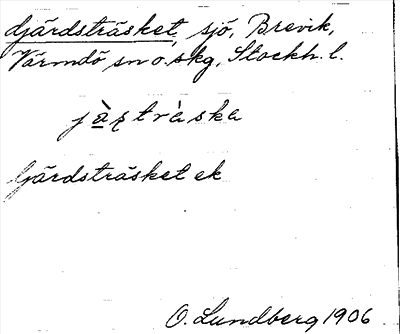 djärdsträsket, sjö, Brevik,
Värmdö sn o. skg, Stockh. l.
jàʂtràska
ljärdsträsket ek
O. Lundberg 1906